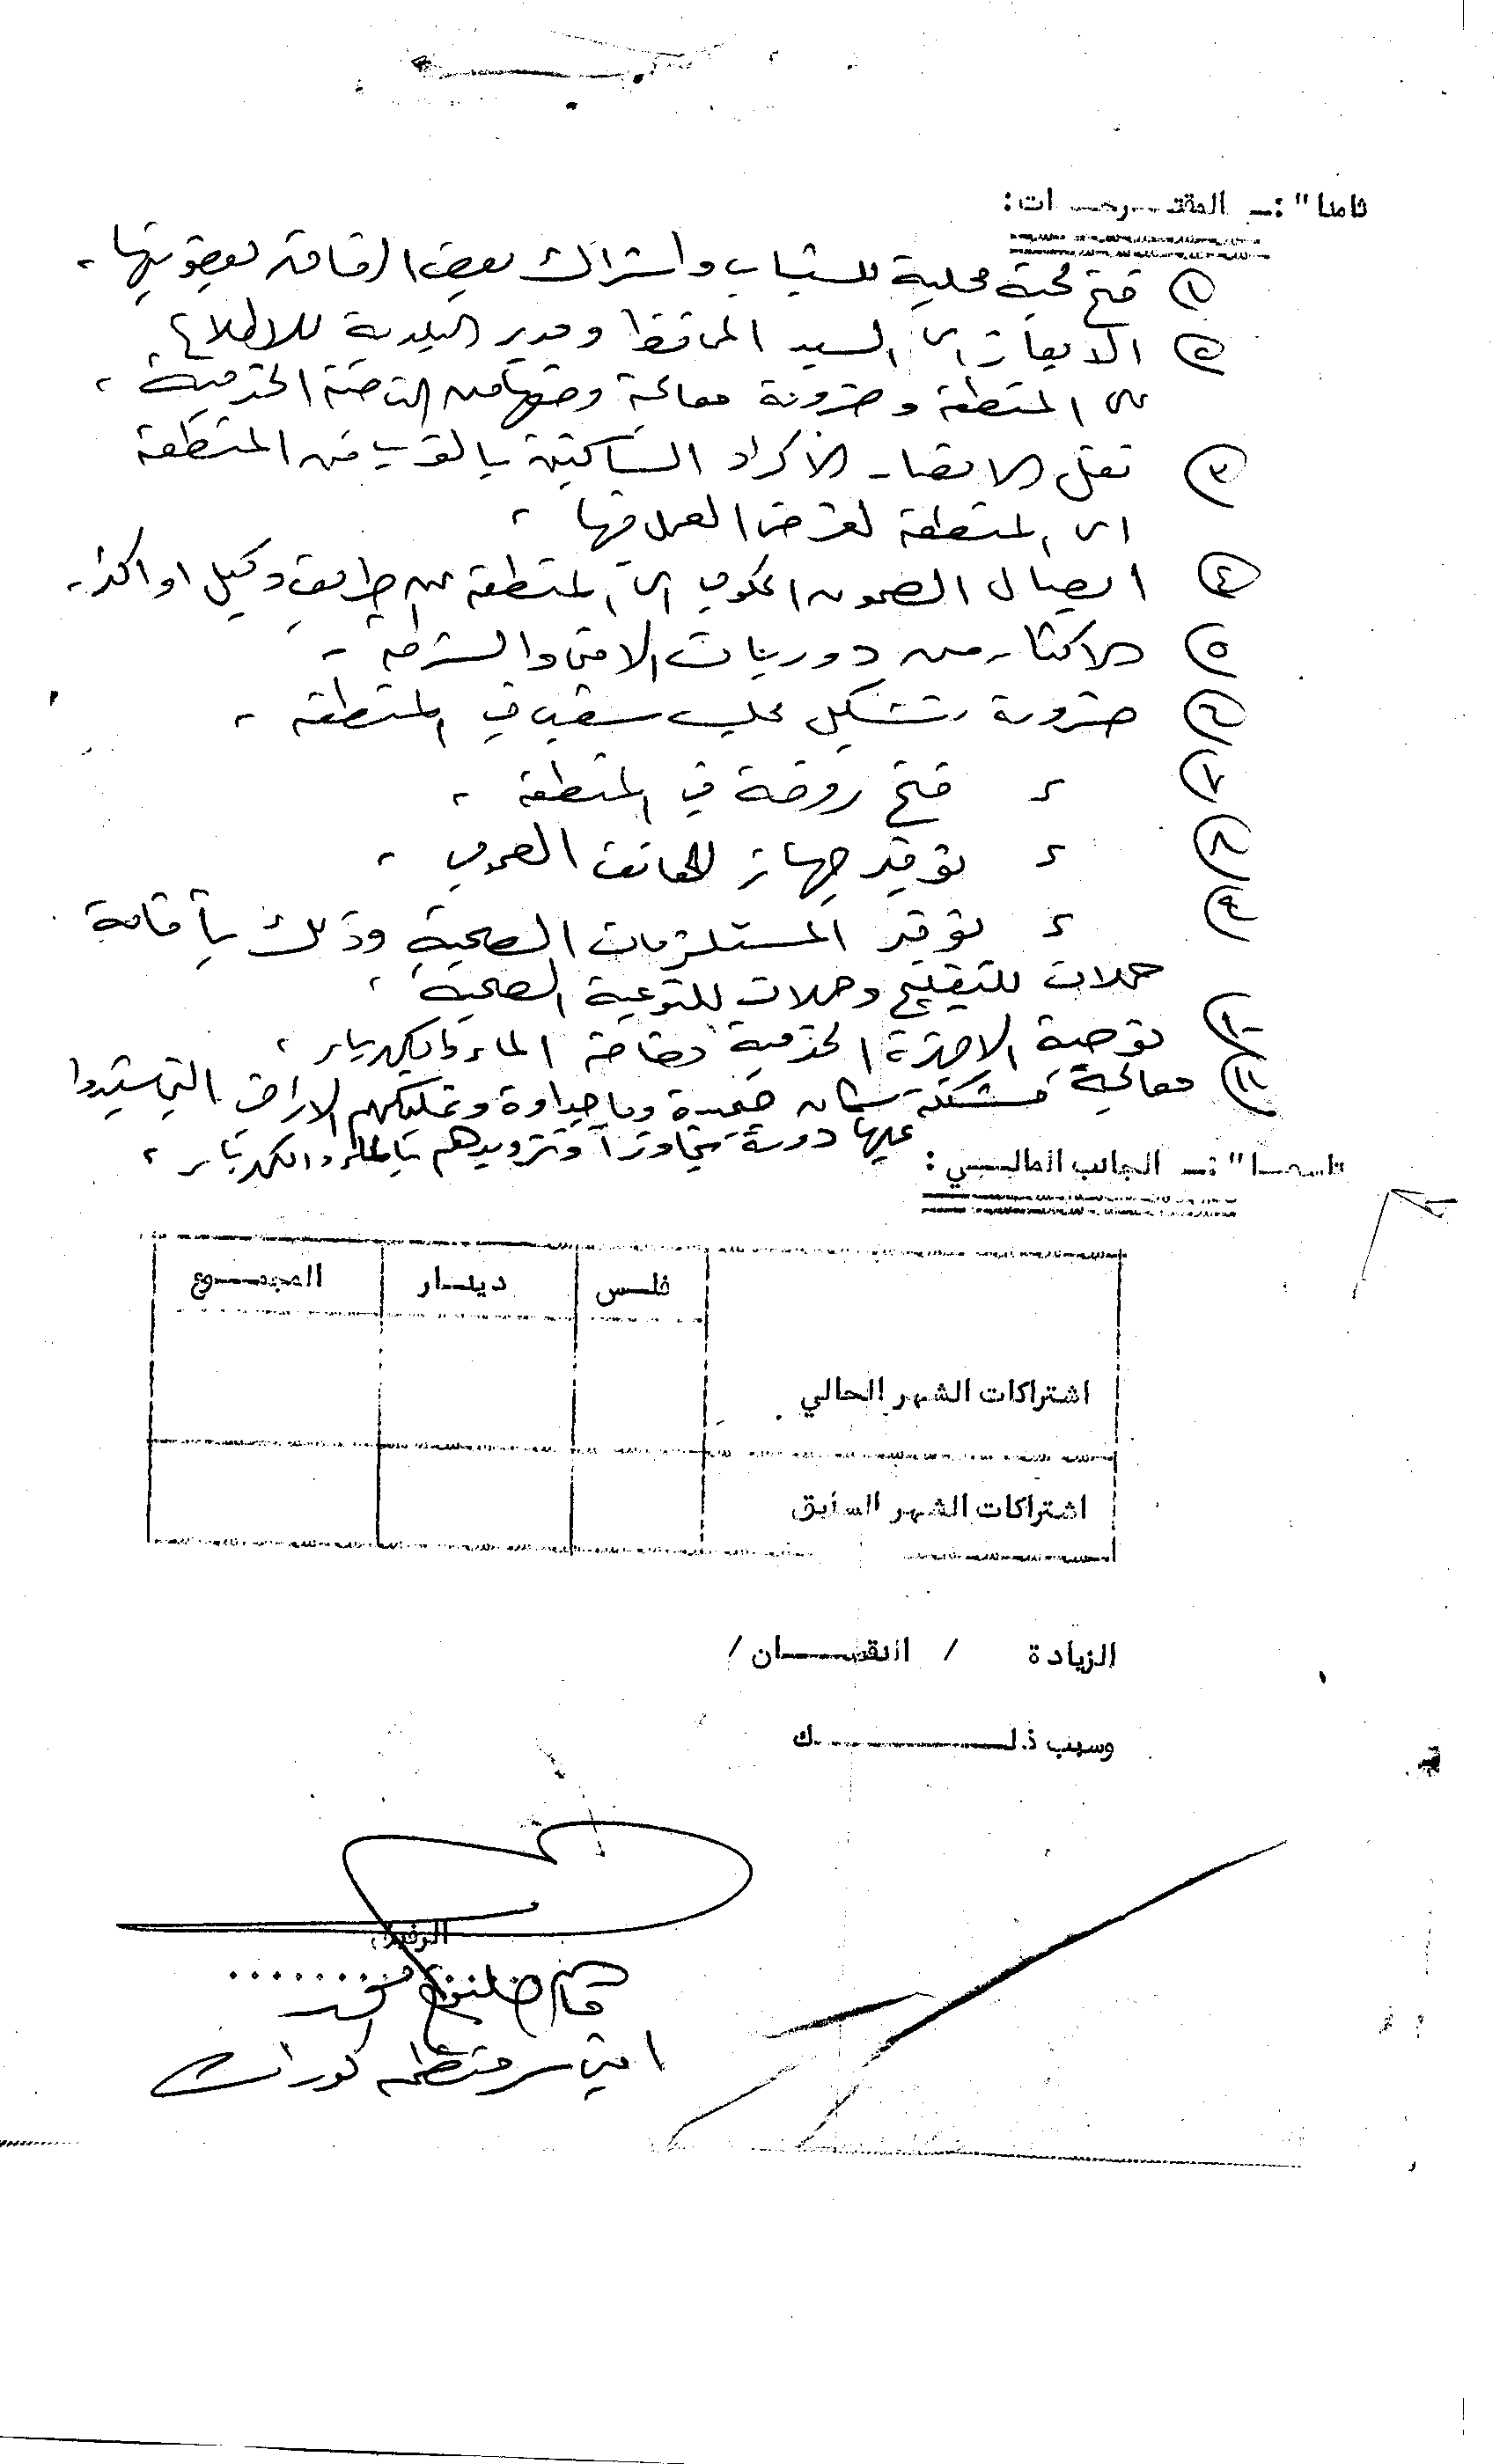 ثامنا" :ـ المقتـــرحـــات :
١) فتح لجنة محلية للشباب واشراك بعض الرفاق بعضويتها .
٢) الايعاز الى السيد المحافظ ومدير البلدية للاطلاع
على المنطقة وضرورة معالجة وضعها من الناحية الخدمية .
٣) نقل الانصار الأكراد الساكنين بالقرب من المنطقة
الى المنطقة لغرض العمل فيها .
٤) ايصال الصمون الحكومي الى المنطقة عن طريق وكيل او اكثر .
٥) الاكثار من دوريات الامن والشرطة .
٦) ضرورة تشكيل مجلس شعب في المنطقة .
٧) = فتح روضة في المنطقة .
٨) = توفير جهاز للهاتف العمومي .
٩) = توفير المستلزمات الصحية وذلك بأقامة
حملات للتلقيح وحملات للتوعية الصحية .
١٠) توصية الاجهزة الخدمية وخاصة الماء والكهرباء .
١١) معالجة مشكلة سكان وتمليكهم الاراضي التي شيدوا
عليها دورهم تجاوزاً وتزويدهم بالماء والكهرباء .
تاسعـــا" :ـ الجانب المالـــي :
فلـس دينـــار المجمــــوع
اشتراكات الشهر الحالي
اشتراكات الشهر السابق
الزيادة / النقصــــان /
وسبب ذلـــــــــــك
الرفيق
امين سر منظمة